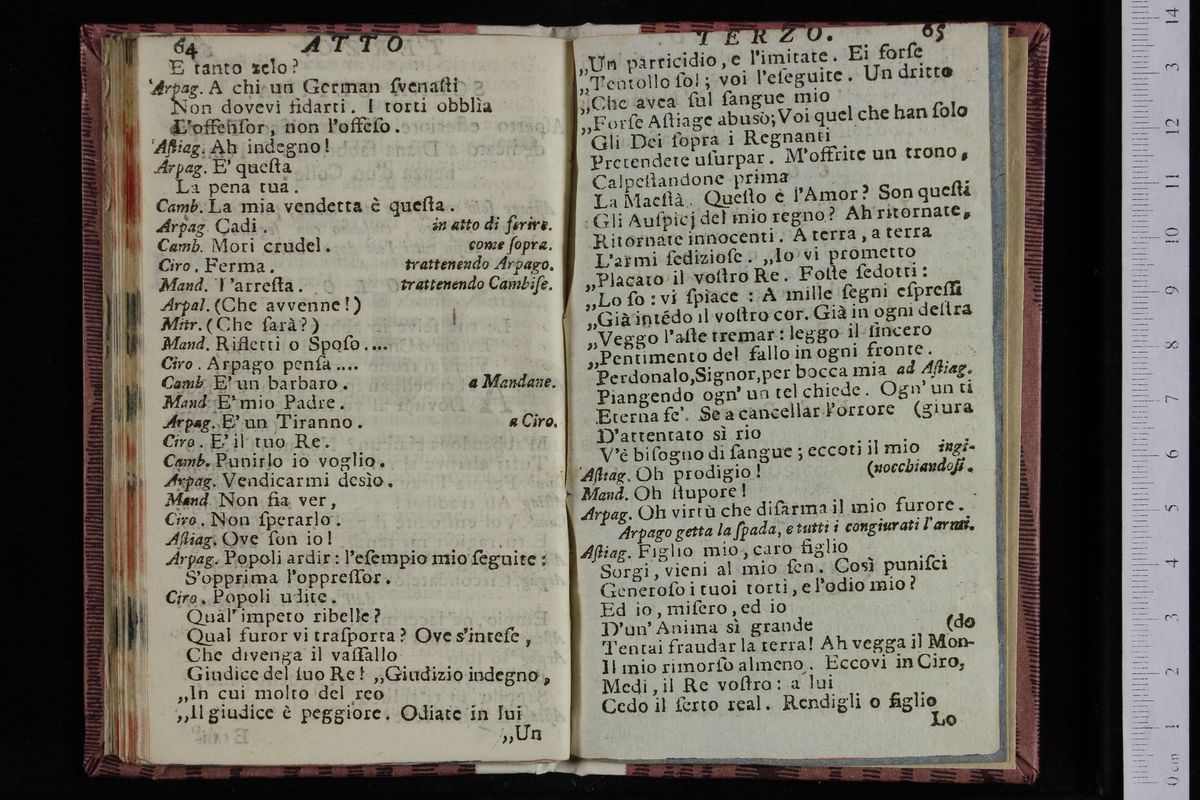 64 ATTO
E tanto zelo?
Arpag. A chi un German ſvenaſti
Non dovevi fidarti. I torti obblìa
L'offenſor, non l'offeſo.
Aſtiag. Ah indegno!
Arpag. E' queſta
La pena tua.
Camb. La mia vendetta è queſta.
Arpag. Cadi. in atto di ferire.
Camb. Mori crudel. come ſopra.
Ciro. Ferma. trattenendo Arpago.
Mand. T'arreſta. trattenendo Cambiſe.
Arpal. (Che avvenne!)
Mitr. (Che ſarà?)
Mand. Rifletti o Spoſo....
Ciro. Arpago penſa....
Camb E' un barbaro. a Mandane.
Mand E' mio Padre.
Arpag. E' un Tiranno. a Ciro.
Ciro. E' il tuo Re.
Camb. Punirlo io voglio.
Arpag. Vendicarmi desìo.
Mand Non fia ver,
Ciro. Non ſperarlo.
Aſtiag. Ove ſon io!
Arpag. Popoli ardir: l'eſempio mio ſeguite:
S'opprima l'oppreſſor.
Ciro. Popoli udite.
Qual' impeto ribelle?
Qual furor vi traſporta? Ove s'inteſe,
Che divenga il vaſſallo
Giudice del ſuo Re! „Giudizio indegno,
„In cui molto del reo
„Il giudice è peggiore. Odiate in lui
„Un
TERZO. 65
„Un parricidio, e l'imitate. Ei forſe
„Tentollo ſol; voi l'eſeguite. Un dritto
„Che avea ſul ſangue mio
„Forſe Aſtiage abusò; Voi quel che han ſolo
Gli Dei ſopra i Regnanti
Pretendete uſurpar. M'offrite un trono,
Calpeſtandone prima
La Maeſtà. Queſto è l'Amor? Son queſti
Gli Auſpicj del mio regno? Ah ritornate,
Ritornate innocenti. A terra, a terra
L'armi ſedizioſe. „Io vi prometto
„Placato il voſtro Re. Foſte ſedotti:
„Lo ſo: vi ſpiace: A mille ſegni eſpreſſi
„Già intẽdo il voſtro cor. Già in ogni deſtra
„Veggo l'aſte tremar: leggo il ſincero
„Pentimento del fallo in ogni fronte.
Perdonalo, Signor, per bocca mia ad Aſtiag.
Piangendo ogn' un tel chiede. Ogn' un ti
Eterna fe'. Se a cancellar l'orrore (giura
D'attentato sì rio
V'è biſogno di ſangue; eccoti il mio ingi-
Aſtiag. Oh prodigio! (nocchiandoſi.
Mand. Oh ſtupore!
Arpag. Oh virtù che diſarma il mio furore.
Arpago getta la ſpada, e tutti i congiurati l'armi.
Aſtiag. Figlio mio, caro figlio
Sorgi, vieni al mio ſen. Così puniſci
Generoſo i tuoi torti, e l'odio mio?
Ed io, miſero, ed io
D'un' Anima sì grande (do
Tentai fraudar la terra! Ah vegga il Mon-
Il mio rimorſo almeno. Eccovi in Ciro,
Medi, il Re voſtro: a lui
Cedo il ſerto real. Rendigli o figlio
Lo
0 cm 1 2 3 4 5 6 7 8 9 10 11 12 3 14